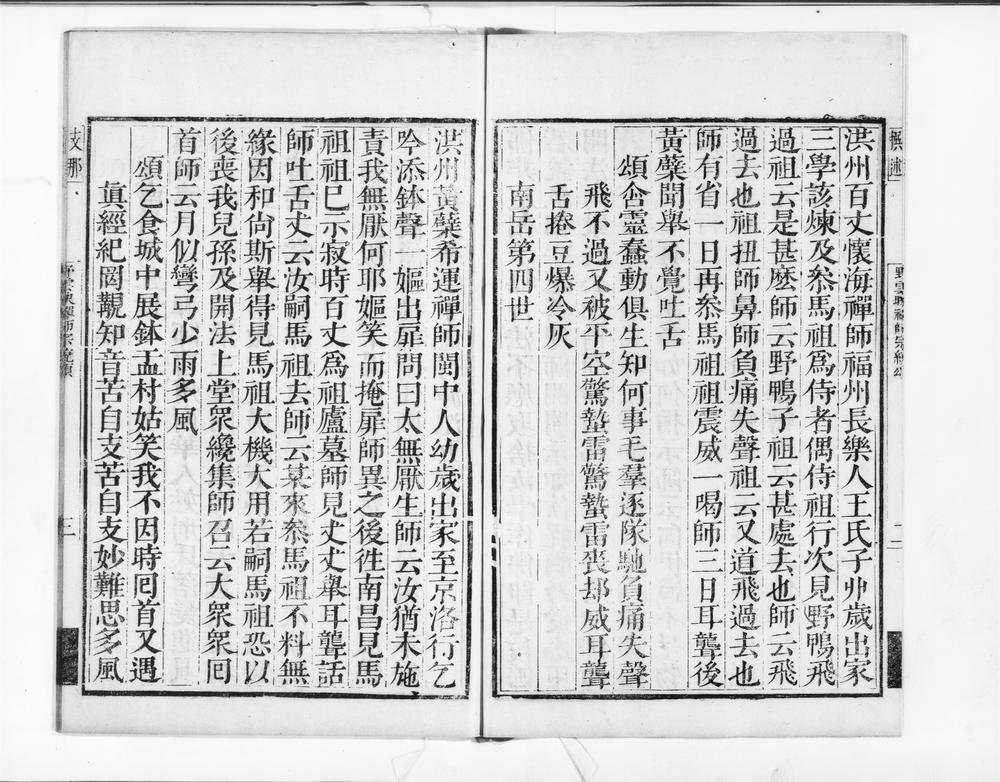 洪州百丈懷海禪師福州長樂人王氏子丱歲出家
三學該煉及叅馬祖爲侍者偶侍祖行次見野鴨飛
過祖云是甚麽師云野鴨子祖云甚處去也師云飛
過去也祖扭師鼻師負痛失聲祖云又道飛過去也
師有省一日再叅馬祖祖震威一喝師三日耳聾後
黃蘗聞舉不覺吐舌
頌含靈蠢動俱生知何事毛羣逐隊馳負痛失聲
飛不過又被平空驚蟄雷驚蟄雷喪却威耳聾
舌捲豆爆冷灰
南岳第四世
洪州黃蘗希運禪師閩中人幼歲出家至京洛行乞
吟添鉢聲一嫗出扉問曰太無厭生師云汝猶未施
責我無厭何耶嫗笑而掩扉師異之後徃南昌見馬
祖祖巳示寂時百丈爲祖廬墓師見丈丈舉耳聾話
師吐舌丈云汝嗣馬祖去師云某來叅馬祖不料無
緣因和尙斯舉得見馬祖大機大用若嗣馬祖恐以
後喪我兒孫及開法上堂衆纔集師召云大衆衆囘
首師云月似彎弓少雨多風
頌乞食城中展鉢盂村姑笑我不因時囘首又遇
眞經紀罔覩知音苦自支苦自支妙難思多風
支那
三